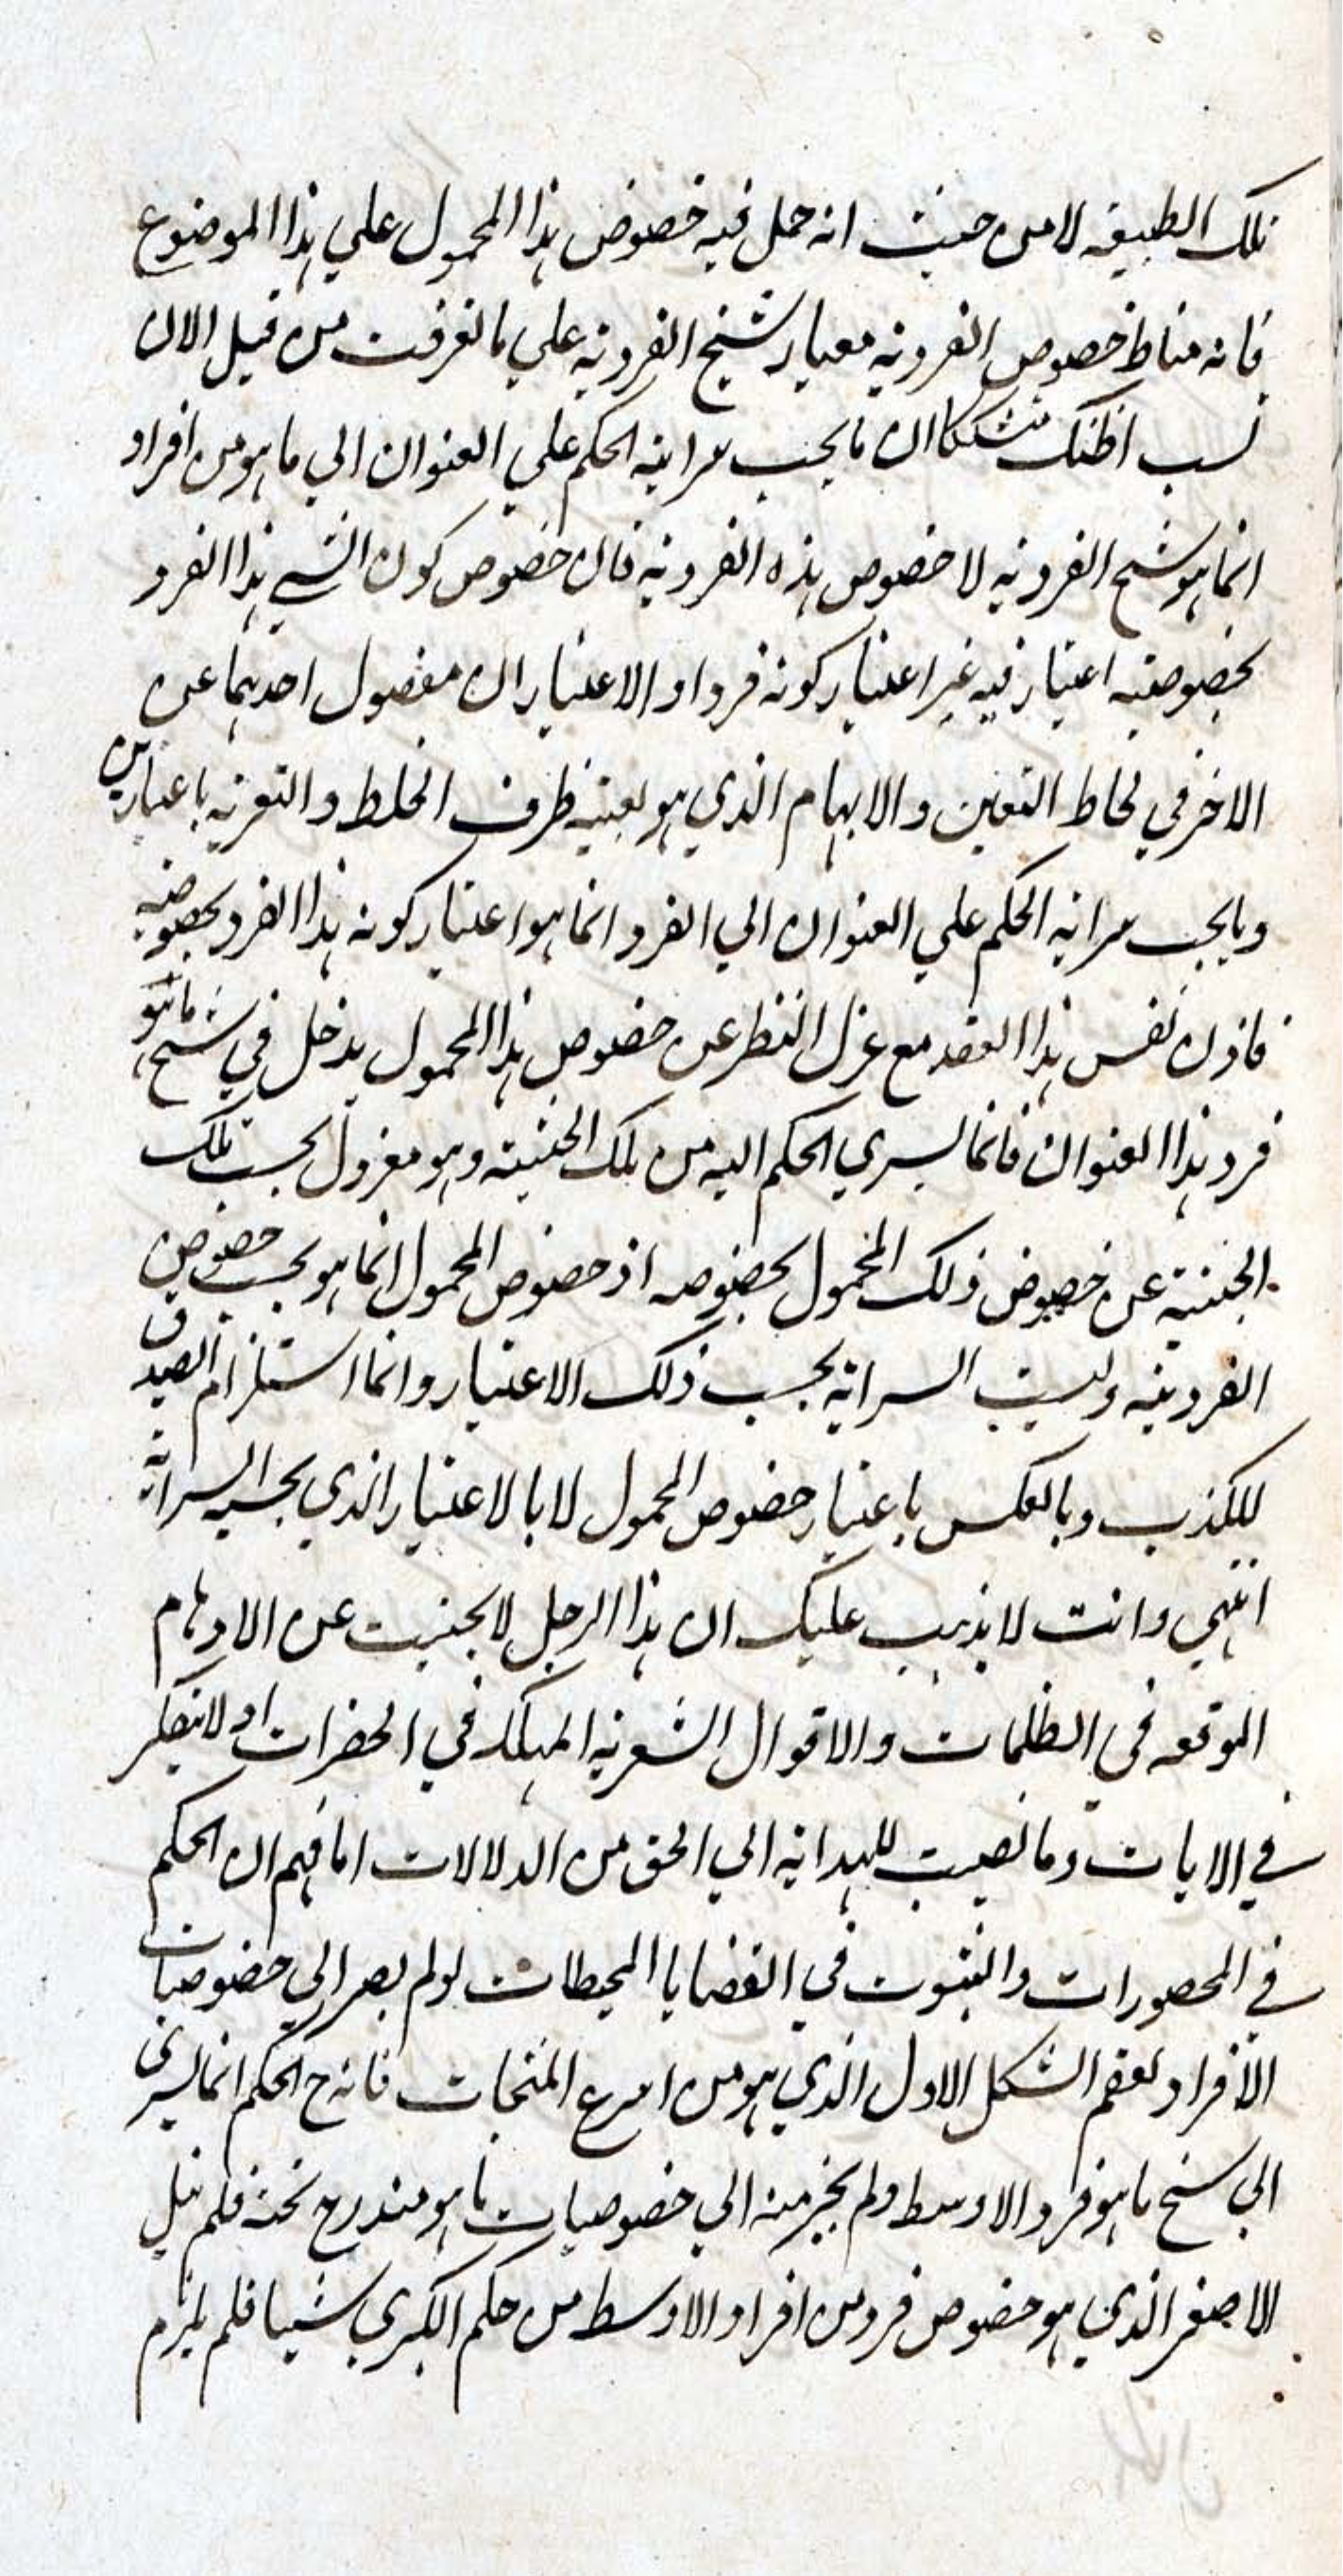 تلك الطبيعة لا من حيث انه حمل فيه خصوص هذا المحمول علي هذا الموضوع
فانه مناط خصوص الفردية معيار سنخ الفردية علي ما تعرفت من قبل الان
لست اظنك متشككا ان ما يجب سراية الحكم علي العنوان الي ما هو من افراد
انما هو سنخ الفردية لا خصوص هذه الفردية فان خصوص كون الشي هذا الفرد
بخصوصيته اعتبار فيه غير اعتبار كونه فردا و الاعتباران مفصول احدهما عن
الاخر في لحاظ التعين والابهام الذي هو بعينه ظرف الخلط والتعرية باعتبارين
وما يجب سراية الحكم علي العنوان الي الفرد انما هو اعتبار كونه هذا الفرد بخصوصه
فاذن نفس هذا العقد مع عزل النظر عن خصوص هذا المحمول يدخل في سنخ ما هو
فرد هذا العنوان فانما يسري الحكم اليه من تلك الحيثية وهو معزول بحسب تلك
الحيثية عن خصوص ذلك المحمول بخصوصه اذ خصوص المحمول انما هو بحسب خصوص
الفردية وليست السراية بحسب ذلك الاعتبار وانما استلزام الصدق
للكذب وبالعكس باعتبار خصوص المحمول لا بالاعتبار الذي بحسبه السراية
انتهي وانت لا يذهب عليك ان هذا الرجل لا يجنب عن الاوهام
الموقعه في الظلمات والاقوال الشعرية المهلكة في الحضرات او لا يتفكر
في الايات وما نصبت للهداية الي الحق من الدلالات اما فهم ان الحكم
في المحصورات والثبوت في القضايا المحيطات لو لم يصر الي خصوصيات
الافراد لعقم الشكل الاول الذي هو من اسرع المنتجات فانه ح الحكم انما يسري
الي سنخ ما هو فرد الاوسط ولم يجز منه الي خصوصيات ما هو مندرج تحته فلم ينل
الاصغر الذي هو خصوص فرد من افراد الاوسط من حكم الكبري شيئا فلم يلزم